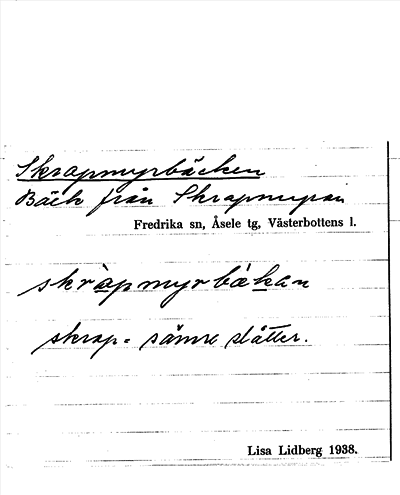 Skrapmyrbäcken
Bäck från Skrapmyran
Fredrika sn, Åsele tg, Västerbottens l.
skràpmyrbä̀kan
skrap = sämre slåtter.
Lisa Lidberg 1938.